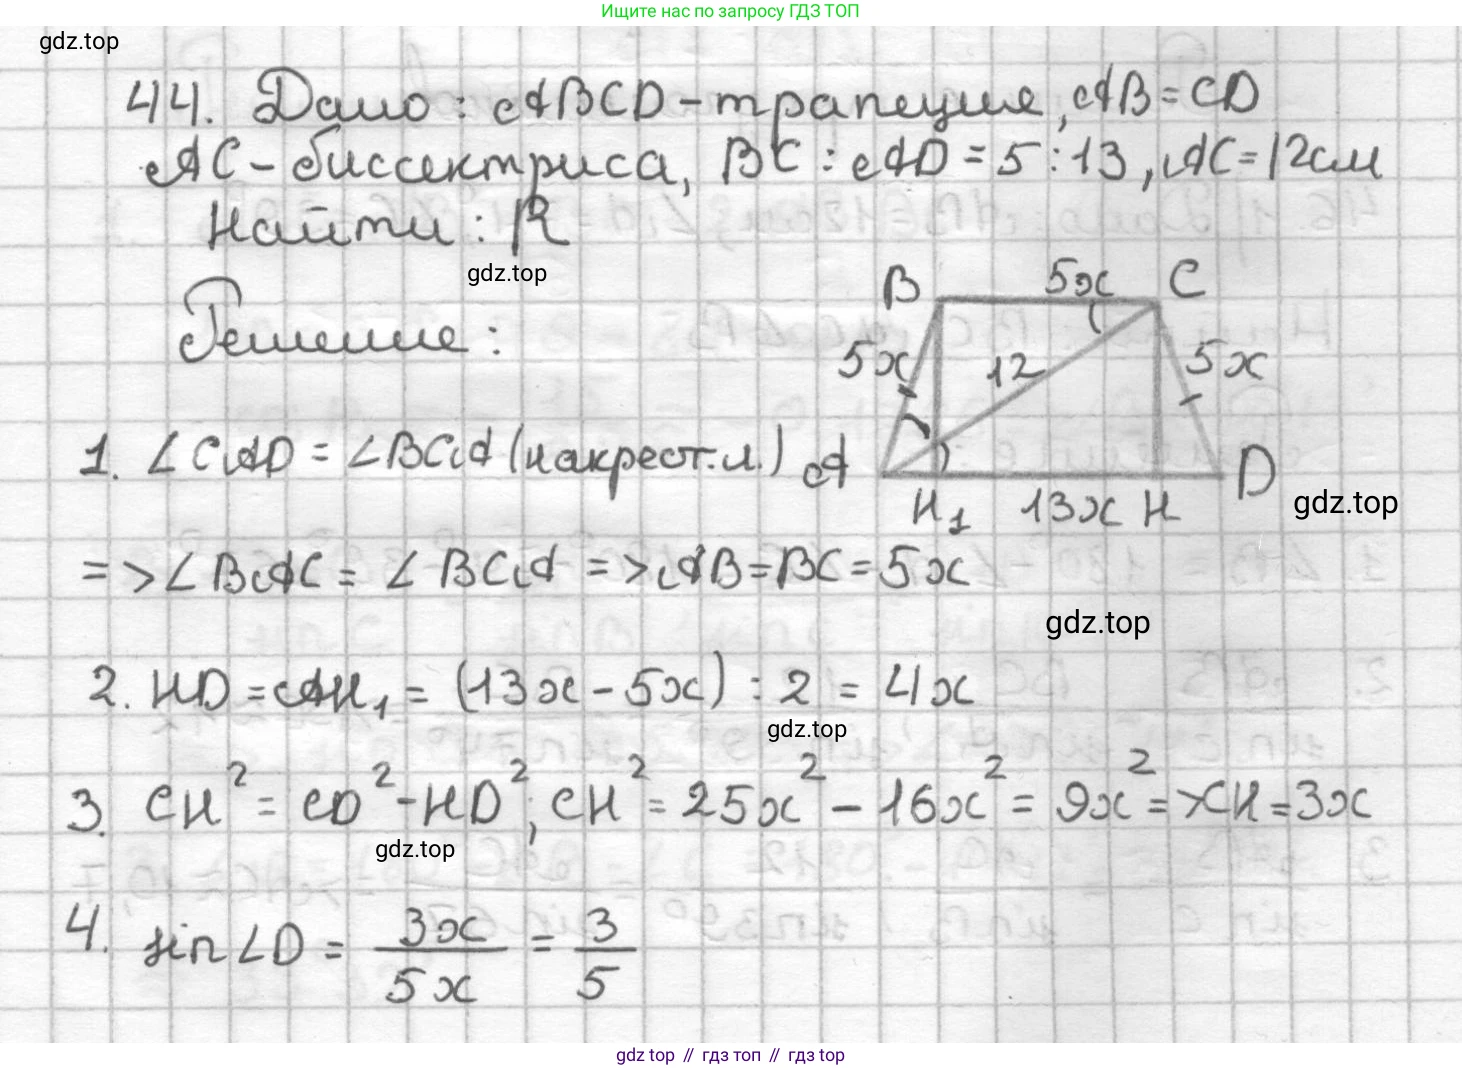 Ищите нас по запросу ГДЗ ТОП
gdz.top
44. Дано: ABCD - трапеция, AB = CD
AC - биссектриса, BC : AD = 5 : 13, AC = 12см
Найти: R
gdz.top
Решение:
B 5x C
5x 12 5x
A H₁ 13x H D
gdz.top
1. ∠CAD = ∠BCA (накрест.л.)
=> ∠BAC = ∠BCA => AB = BC = 5x
gdz.top
2. HD = AH₁ = (13x - 5x) : 2 = 4x
gdz.top
3. CH² = CD² - HD²; CH² = 25x² - 16x² = 9x² => CH = 3x
gdz.top
4. sin∠D = 3x/5x = 3/5
gdz top // гдз топ // гдз top